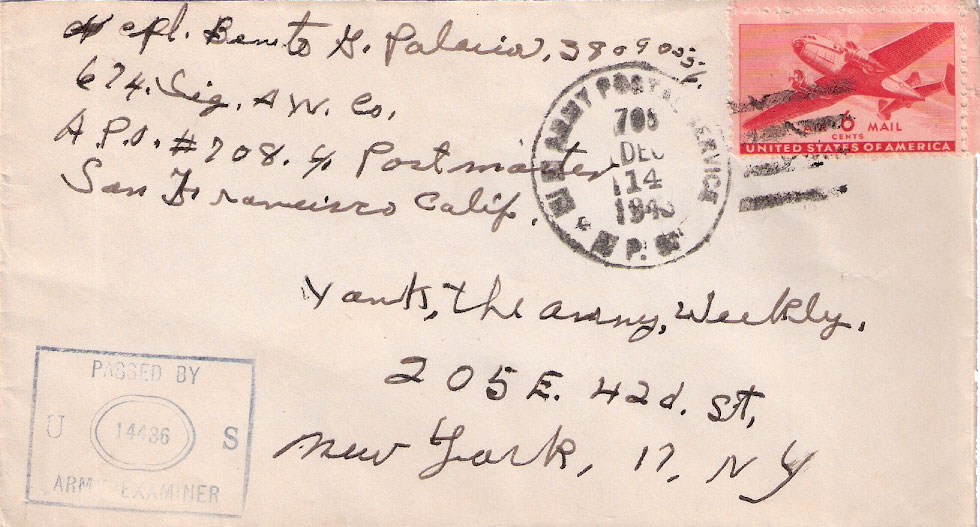 Cpl. Benito G. Palacio, 3809055
674. Sig. A W. Co.
A.P.O. #708. c/o Postmaster
San Francisco Calif.
U.S. ARMY POSTAL SERVICE
708
DEC
14
1943
A.P.O.
6 CENTS
AIR MAIL
UNITED STATES OF AMERICA
Yank, The Army, Weekly,
205 E. 42d. St,
New York, 17, NY
PASSED BY
U 14436 S
ARMY EXAMINER